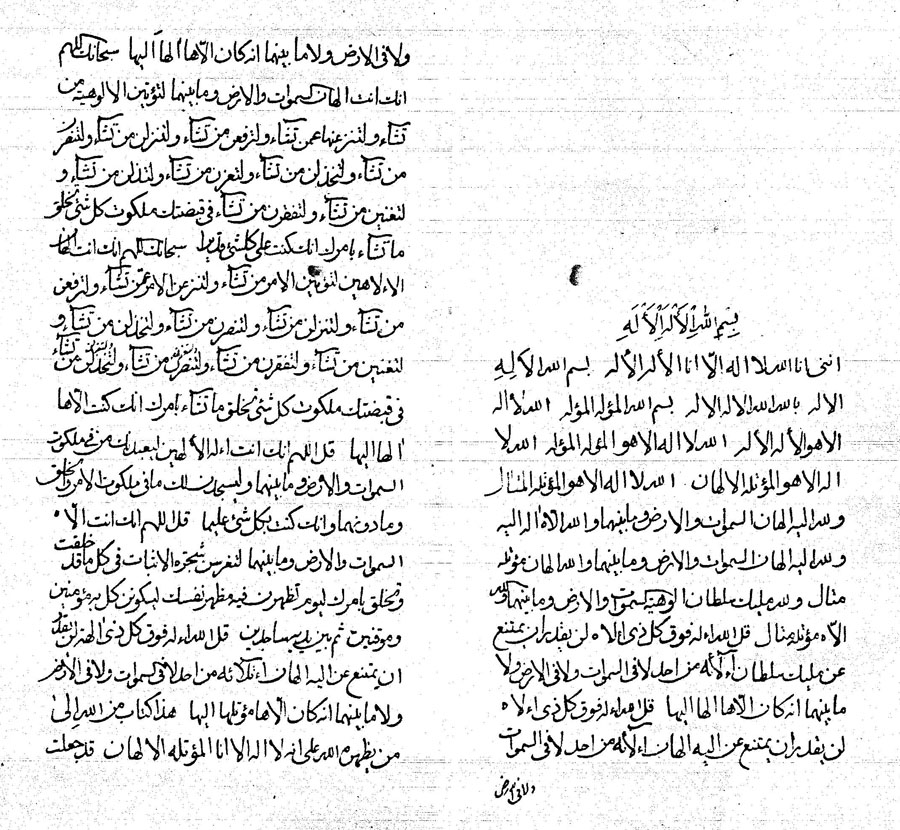 بسم الله الأله الأله
اننى انا الله لا اله الا انا الأله الأله بسم الله الأله
الاله بالله الله الاله الاله بسم الله المؤله المؤله الله لا اله
الا هو الأله الأله الله لا اله الا هو المؤله المؤله الله لا
اله الا هو المؤتله الالهان الله لا اله الا هو المؤتله المتئال
ولله اليه الهان السموات والارض وما بينهما والله الاه اله اليه
ولله اليه الهان السموات والارض وما بينهما والله الهان مؤتله
مثال ولله مليك سلطان الوهية السموات والارض وما بينهما والله
الاه مؤتله مثال قل الله اءله فوق كل ذى اءلاه لن يقدر ان يمتنع
عن مليك سلطان اءلاله من احد لا فى السموات ولا فى الارض ولا
ما بينهما انه كان الاها الها اليها قل الله اءله فوق كل ذى اءلاه
لن يقدر ان يمتنع عن اليه الهان اءلاله من احد لا فى السموات
ولا فى الارض
ولا فى الارض ولا ما بينهما انه كان الاها الها اليها سبحانك اللهم
انك انت الهان السموات والارض وما بينهما لتؤتين الالوهية من
تشاء ولتنزعنها عمن تشاء ولترفعن من تشاء ولتنزلن من تشاء ولتنصرن
من تشاء ولتخذلن من تشاء ولتعزن من تشاء ولتذلن من تشاء و
لتغنين من تشاء ولتفقرن من تشاء فى قبضتك ملكوت كل شئ تخلق
ما تشاء بامرك انك كنت على كل شئ قديرا سبحانك اللهم انك انت الهان
الاءلاهين لتؤتين الامر من تشاء ولتنزعن الامر عمن تشاء ولترفعن
من تشاء ولتنزلن من تشاء ولتنصرن من تشاء ولتخذلن من تشاء و
لتغنين من تشاء ولتفقرن من تشاء من تشاء من تشاء
فى قبضتك ملكوت كل شئ تخلق ما تشاء بامرك انك كنت الاها
الها اليها قل اللهم انك انت اءله الألهين ليعبدنك من فى ملكوت
السموات والارض وما بينهما وليسجدن لك ما فى ملكوت الامر والخلق
وما دونهما وانك كنت بكل شئ عليما قل اللهم انك انت الاه
السموات والارض وما بينهما لتغرسن شجرة الاثبات فى كل ما قد خلقت
وتخلق بامرك ليوم تظهرن فيه مظهر نفسك ليكونن كل به مؤمنين
وموقنين ثم بين يديه ساجدين قل الله اءله فوق كل ذى الهة لن يقدر
ان يمتنع عن اليه الهان اءلاله من احد لا فى السموات ولا فى الارض
ولا ما بينهما انه كان الاها مؤتلها اليها هذا كتاب من الله الى
من يظهره الله على انه لا اله الا انا المؤتله الالهان قد جعلت